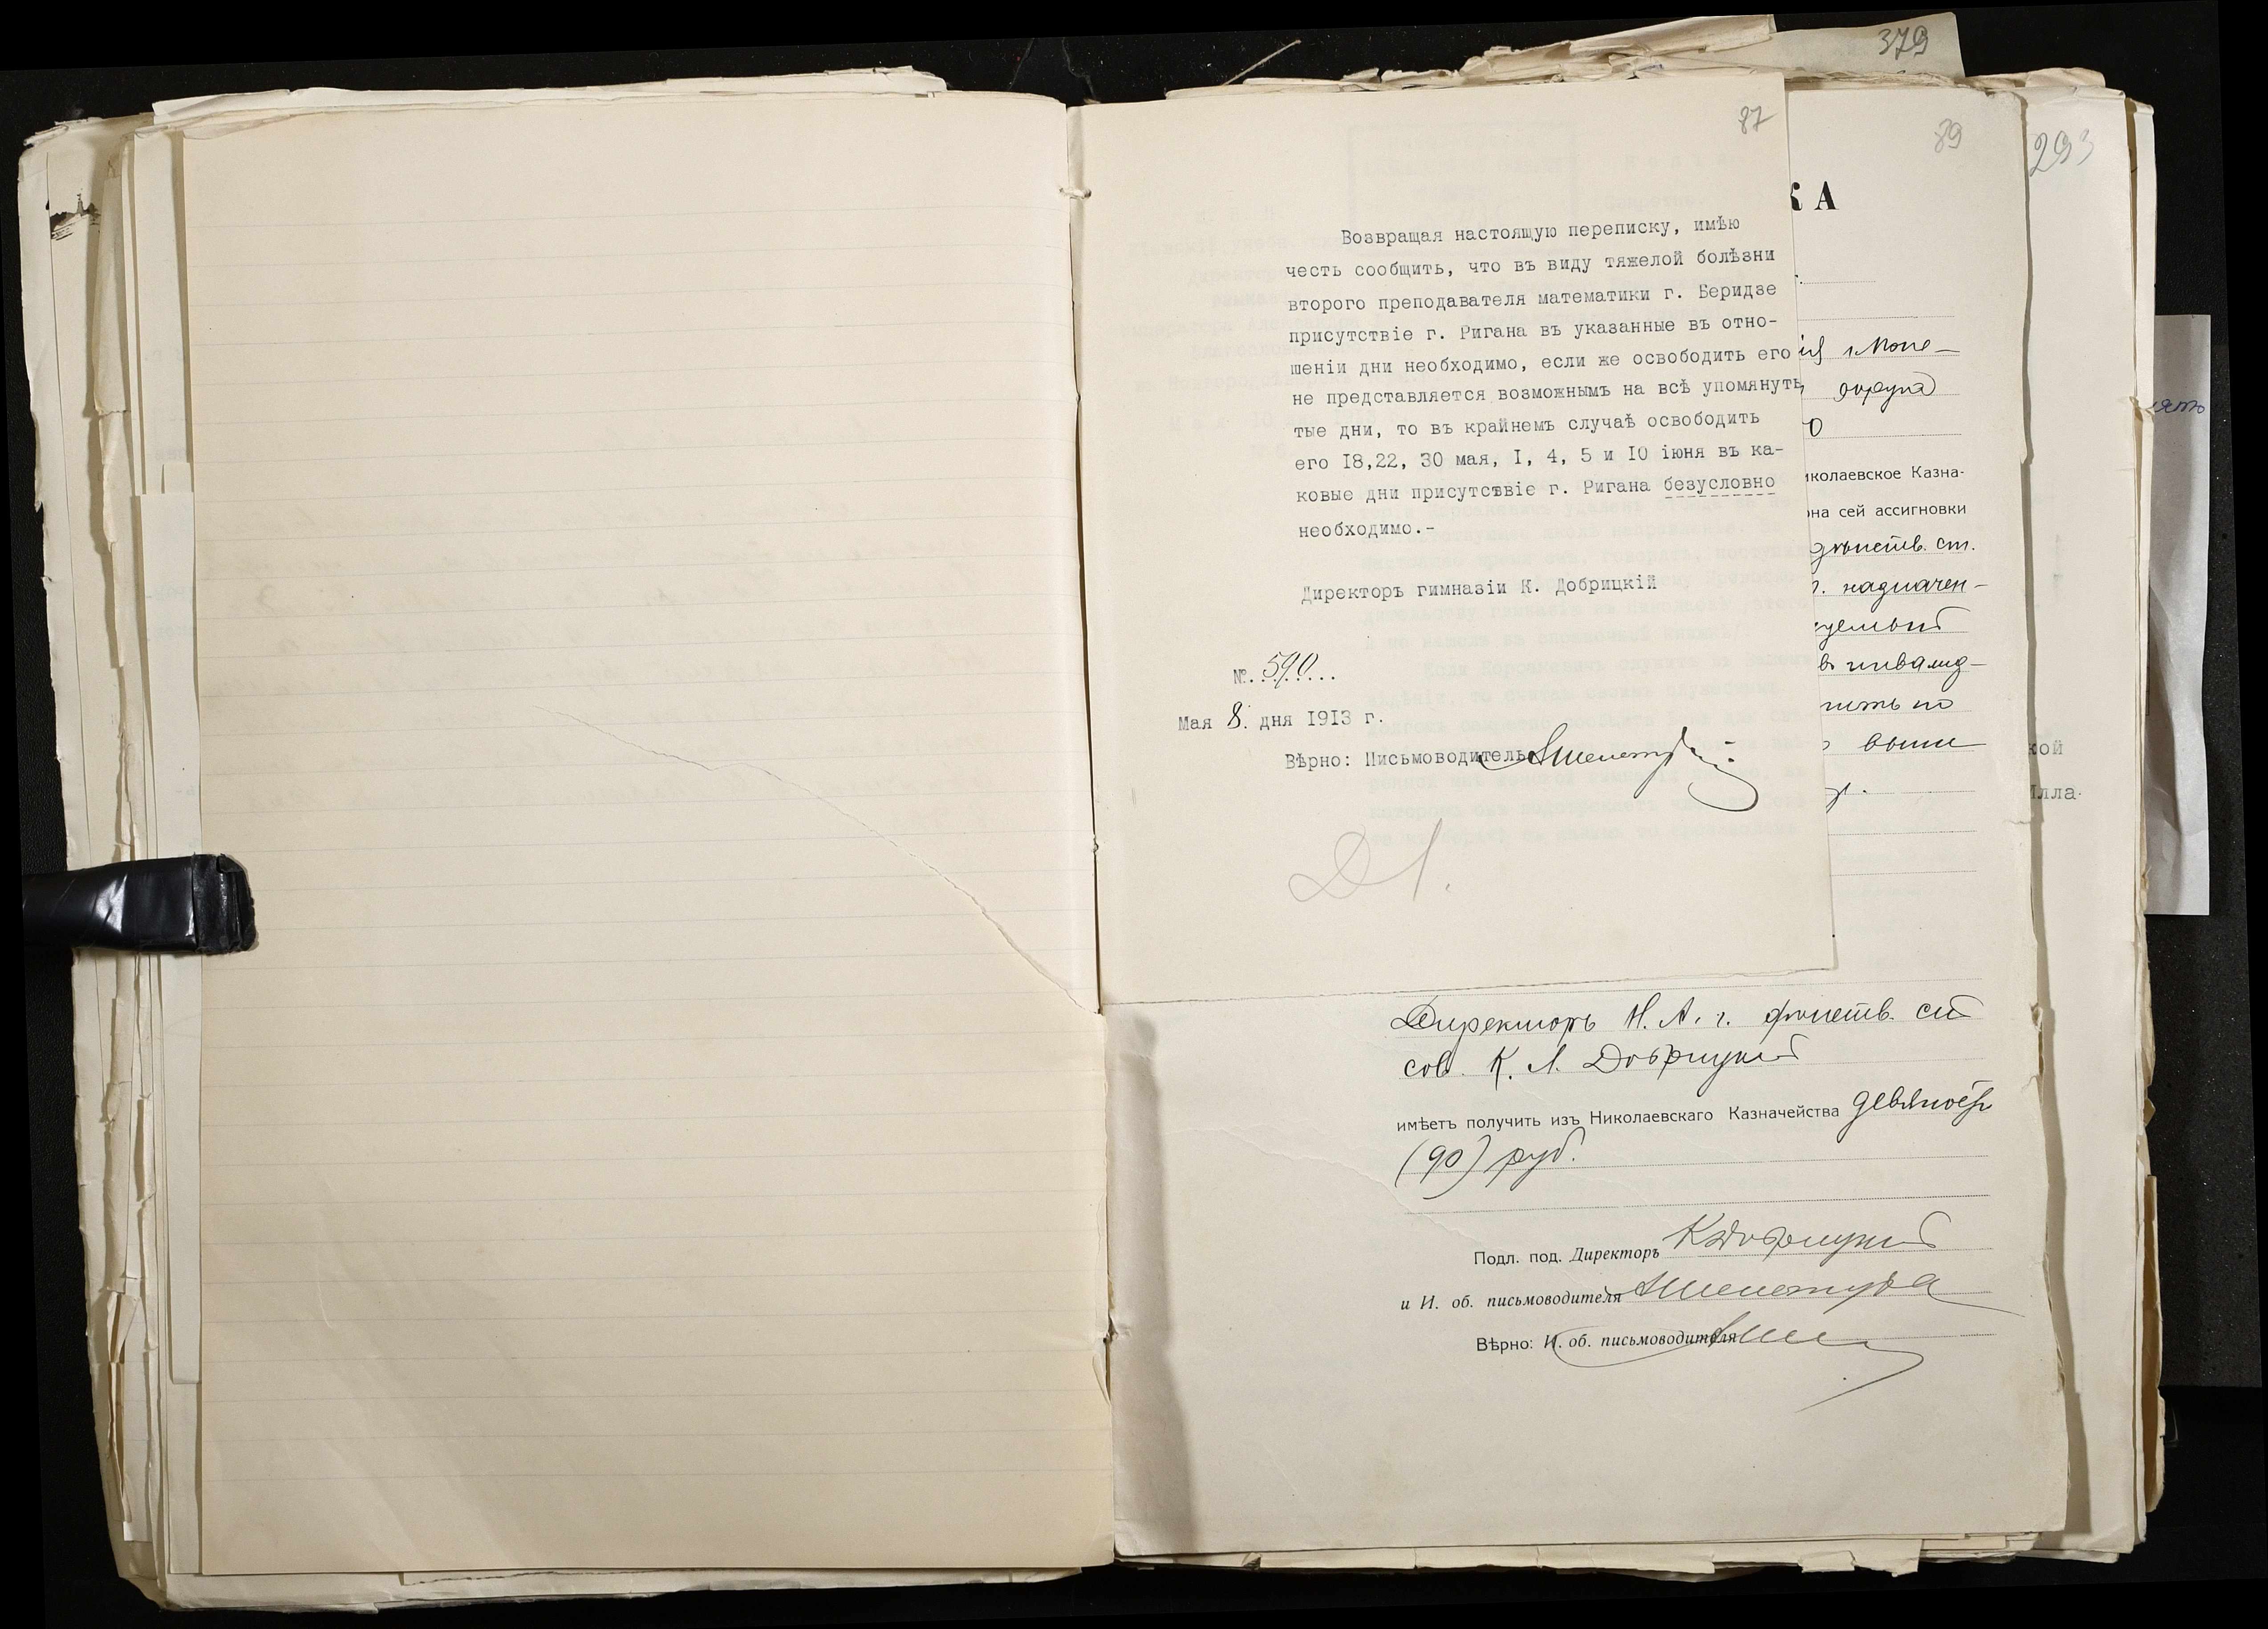 379
87
Возвращая настоящую переписку, имѣю
честь сообщить, что въ виду тяжелой болѣзни
второго преподавателя математики г. Беридзе
присутствіе г. Ригана въ указанные въ отно-
шеніи дни необходимо, если же освободить его
не представляется возможнымъ на всѣ упомянутъ
тые дни, то въ крайнемъ случаѣ освободить
его I8,22, 30 мая, I, 4, 5 и IO іюня въ ка-
ковые дни присутствіе г. Ригана безусловно
необходимо.-
Директоръ гимназіи К. Добрицкій
№. 590...
Мая 8. дня I9I3 г.
Вѣрно: Письмоводитель
Д 1.
89
КА
округа
иколаевское Казна-
она сей ассигновки
дѣйств. ст.
назначен-
въ инвалид-
выше
Директоръ Н. А. г. дѣйств. ст
сов. К. Л. Добрицкій
имѣетъ получить изъ Николаевскаго Казначейства девяносто
(90) руб.
Подл. под. Директоръ КДобрицкій
и И. об. письмоводителя АШелемуха
Вѣрно: И. об. письмоводителя
293
кой
Илла-